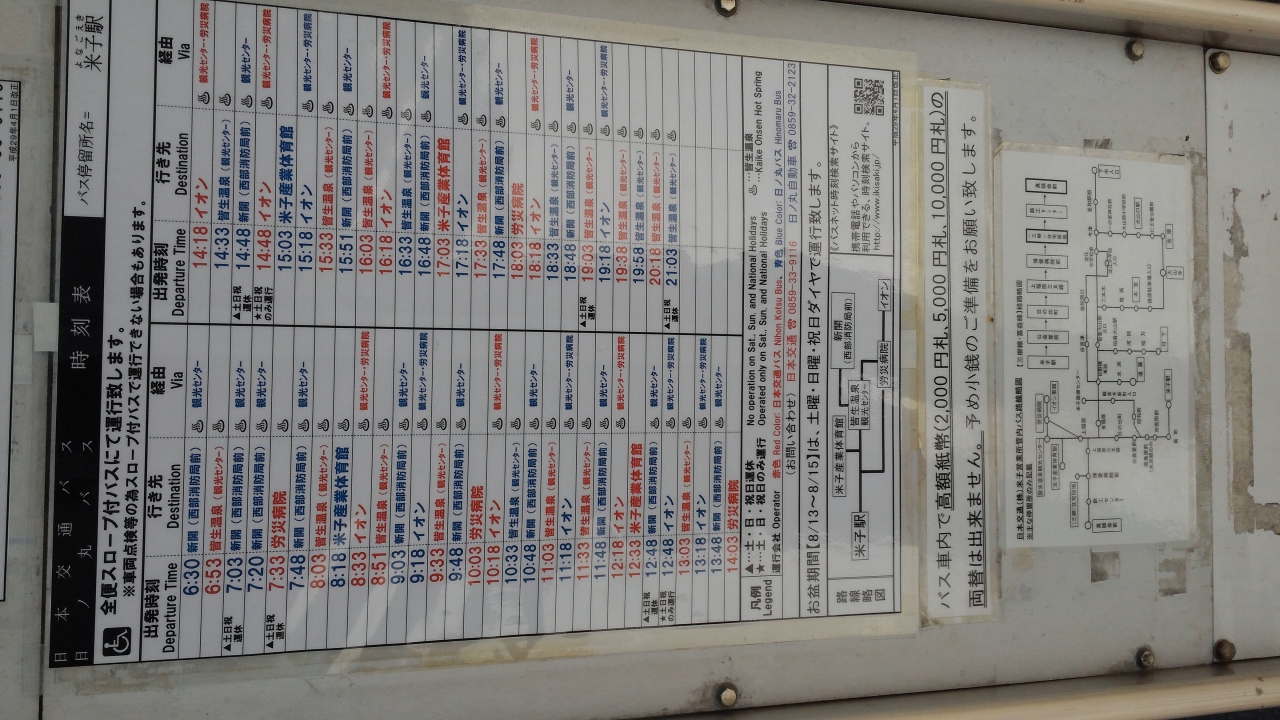 日本交通バス
日ノ丸バス
時刻表
バス停留所名=
よなごえき
米子駅
平成29年4月1日改正
全便スロープ付バスにて運行致します。
※車両点検等の為スロープ付バスで運行できない場合もあります。
出発時刻 行き先 経由
Departure Time Destination Via
6:30 新開(西部消防局前) 観光センター
6:53 皆生温泉(観光センター)
▲土日祝運休 7:03 新開(西部消防局前) 観光センター
7:20 新開(西部消防局前) 観光センター
▲土日祝運休 7:33 労災病院
7:48 新開(西部消防局前) 観光センター
8:03 皆生温泉(観光センター)
8:18 米子産業体育館
8:33 イオン 観光センター・労災病院
8:51 皆生温泉(観光センター)
9:03 新開(西部消防局前) 観光センター
9:18 イオン 観光センター・労災病院
9:33 皆生温泉(観光センター)
9:48 新開(西部消防局前) 観光センター
10:03 労災病院
10:18 イオン 観光センター・労災病院
10:33 皆生温泉(観光センター)
10:48 新開(西部消防局前) 観光センター
11:03 皆生温泉(観光センター)
11:18 イオン 観光センター・労災病院
11:33 皆生温泉(観光センター)
11:48 新開(西部消防局前) 観光センター
12:18 イオン 観光センター・労災病院
12:33 米子産業体育館
▲土日祝運休 12:48 皆生温泉(観光センター)
★土日祝のみ運行 12:48 新開(西部消防局前) 観光センター
13:03 皆生温泉(観光センター)
13:18 イオン 観光センター・労災病院
13:48 新開(西部消防局前) 観光センター
14:03 労災病院
出発時刻 行き先 経由
Departure Time Destination Via
14:18 イオン 観光センター・労災病院
14:33 皆生温泉(観光センター)
▲土日祝運休 14:48 新開(西部消防局前) 観光センター
★土日祝のみ運行 14:48 イオン 観光センター・労災病院
15:03 米子産業体育館
15:18 イオン 観光センター・労災病院
15:39 皆生温泉(観光センター)
15:51 新開(西部消防局前) 観光センター
16:03 皆生温泉(観光センター)
16:18 イオン 観光センター・労災病院
16:33 皆生温泉(観光センター)
16:48 新開(西部消防局前) 観光センター
17:03 米子産業体育館
17:18 イオン 観光センター・労災病院
17:33 皆生温泉(観光センター)
17:48 新開(西部消防局前) 観光センター
18:03 労災病院
18:18 イオン 観光センター・労災病院
18:33 皆生温泉(観光センター)
18:48 新開(西部消防局前) 観光センター
▲土日祝運休 19:03 皆生温泉(観光センター)
19:18 イオン 観光センター・労災病院
19:39 皆生温泉(観光センター)
19:59 皆生温泉(観光センター)
20:18 皆生温泉(観光センター)
▲土日祝運休 21:03 皆生温泉(観光センター)
凡例
Legend
▲…土・日・祝日運休 No operation on Sat. Sun. and National Holidays
★…土・日・祝日のみ運行 Operated only on Sat. Sun. and National Holidays
…皆生温泉
…Kaike Onsen Hot Spring
運行会社 Operator 赤色 Red Color: 日本交通バス Nihon Kotsu Bus、青色 Blue Color: 日ノ丸バス Hinomaru Bus
(お問い合わせ) 日本交通 ☎ 0859-33-9116 日ノ丸自動車 ☎ 0859-32-2123
お盆期間【8/13~8/15】は、土曜・日曜・祝日ダイヤで運行致します。
路線略図
米子駅
米子産業体育館
皆生温泉
観光センター
新開
(西部消防局前)
労災病院
イオン
《バスネット時刻検索サイト》
携帯電話やパソコンから
利用できる、時刻検索サイト。
http://www.ikisaki.jp/
バス車内で高額紙幣(2,000円札、5,000円札、10,000円札)の
両替は出来ません。予め小銭のご準備をお願い致します。
日本交通(株)米子営業所管内バス路線略図
※主な停留所のみ記載